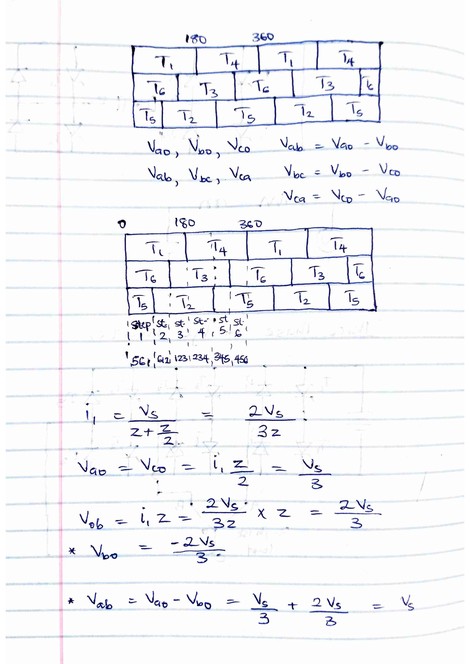 180 360
T₁ T₄ T₁ T₄
T₆ T₃ T₆ T₃ T₆
T₅ T₂ T₅ T₂ T₅
Vao, Vbo, Vco Vab = Vao - Vbo
Vab, Vbc, Vca Vbc = Vbo - Vco
Vca = Vco - Vao
0 180 360
T₁ T₄ T₁ T₄
T₆ T₃ T₆ T₃ T₆
T₅ T₂ T₅ T₂ T₅
step st. st. st- st st.
1 2 3 4 5 6
561 612 123 234 345 456
i₁ = Vs/(z + z/2) = 2Vs/3z
Vao = Vco = i₁ z/2 = Vs/3
Vob = i₁ z = 2Vs/3z × z = 2Vs/3
* Vbo = -2Vs/3
* Vab = Vao - Vbo = Vs/3 + 2Vs/3 = Vs